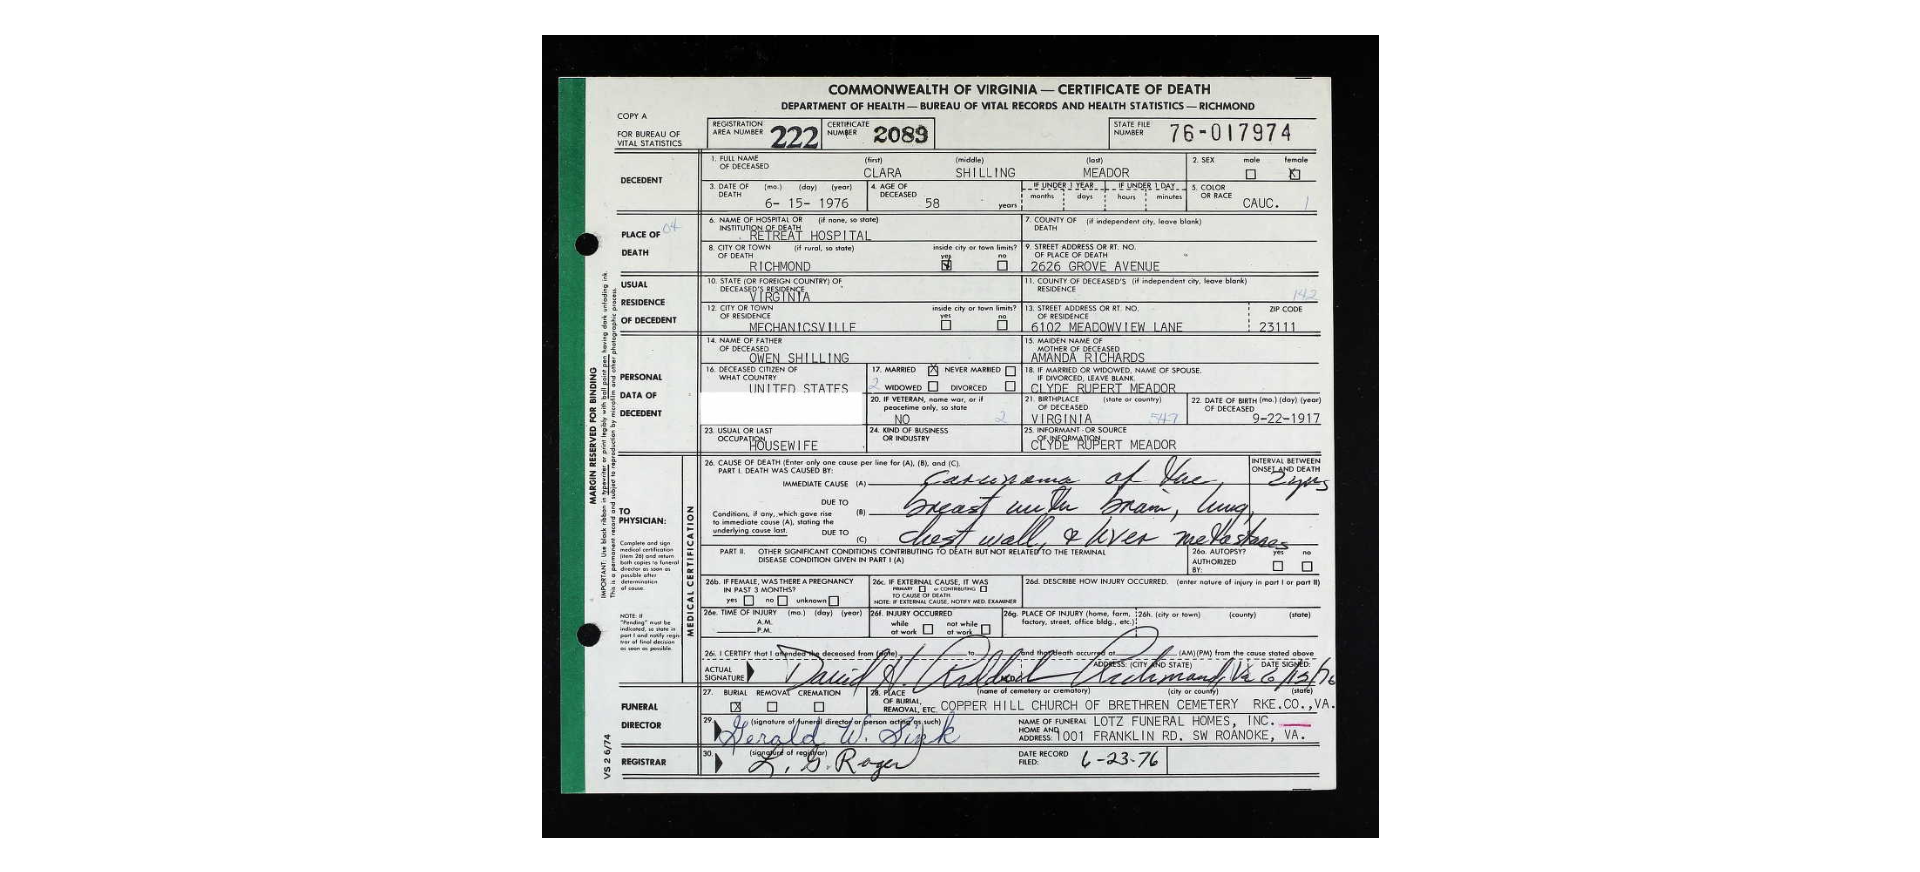 COMMONWEALTH OF VIRGINIA — CERTIFICATE OF DEATH
DEPARTMENT OF HEALTH — BUREAU OF VITAL RECORDS AND HEALTH STATISTICS — RICHMOND
COPY A
FOR BUREAU OF VITAL STATISTICS
REGISTRATION AREA NUMBER 222
CERTIFICATE NUMBER 2089
STATE FILE NUMBER 76-017974
DECEDENT
1. FULL NAME OF DECEASED (first) (middle) (last)
CLARA SHILLING MEADOR
2. SEX male female X
3. DATE OF DEATH (mo.) (day) (year)
6- 15- 1976
4. AGE OF DECEASED 58 years
IF UNDER 1 YEAR IF UNDER 1 DAY
months days hours minutes
5. COLOR OR RACE CAUC. 1
PLACE OF DEATH
04
6. NAME OF HOSPITAL OR INSTITUTION OF DEATH (if none, so state)
RETREAT HOSPITAL
7. COUNTY OF DEATH (if independent city, leave blank)
8. CITY OR TOWN OF DEATH (if rural, so state)
RICHMOND
inside city or town limits? yes no
9. STREET ADDRESS OR RT. NO. OF PLACE OF DEATH
2626 GROVE AVENUE
USUAL RESIDENCE OF DECEDENT
10. STATE (OR FOREIGN COUNTRY) OF DECEASED'S RESIDENCE
VIRGINIA
11. COUNTY OF DECEASED'S RESIDENCE (if independent city, leave blank)
142
12. CITY OR TOWN OF RESIDENCE
MECHANICSVILLE
inside city or town limits? yes no
13. STREET ADDRESS OR RT. NO. OF RESIDENCE
6102 MEADOWVIEW LANE
ZIP CODE
23111
PERSONAL DATA OF DECEDENT
14. NAME OF FATHER OF DECEASED
OWEN SHILLING
15. MAIDEN NAME OF MOTHER OF DECEASED
AMANDA RICHARDS
16. DECEASED CITIZEN OF WHAT COUNTRY
UNITED STATES
17. MARRIED X NEVER MARRIED
2 WIDOWED DIVORCED
18. IF MARRIED OR WIDOWED, NAME OF SPOUSE. IF DIVORCED, LEAVE BLANK.
CLYDE RUPERT MEADOR
20. IF VETERAN, name war, or if peacetime only, so state
NO 2
21. BIRTHPLACE OF DECEASED (state or country)
VIRGINIA 547
22. DATE OF BIRTH (mo.) (day) (year) OF DECEASED
9-22-1917
23. USUAL OR LAST OCCUPATION
HOUSEWIFE
24. KIND OF BUSINESS OR INDUSTRY
25. INFORMANT - OR SOURCE OF INFORMATION
CLYDE RUPERT MEADOR
MARGIN RESERVED FOR BINDING
IMPORTANT: Use black ribbon in typewriter or print legibly with ball point pen having dark unfading ink.
This is a permanent record and subject to reproduction by microfilm and other photographic process.
TO PHYSICIAN:
Complete and sign medical certification (item 26) and return both copies to funeral director as soon as possible after determination of cause.
NOTE: If "Pending" must be indicated, so state in part I and notify registrar of final decision as soon as possible.
MEDICAL CERTIFICATION
26. CAUSE OF DEATH (Enter only one cause per line for (A), (B), and (C).
PART I. DEATH WAS CAUSED BY:
INTERVAL BETWEEN ONSET AND DEATH
IMMEDIATE CAUSE (A) Carcinoma of the 2 yrs
DUE TO
Conditions, if any, which gave rise to immediate cause (A), stating the underlying cause last.
(B) breast with brain, lung,
DUE TO
(C) chest wall, & liver metastases
PART II. OTHER SIGNIFICANT CONDITIONS CONTRIBUTING TO DEATH BUT NOT RELATED TO THE TERMINAL DISEASE CONDITION GIVEN IN PART I (A)
26a. AUTOPSY? yes no
AUTHORIZED BY:
26b. IF FEMALE, WAS THERE A PREGNANCY IN PAST 3 MONTHS?
yes no unknown
26c. IF EXTERNAL CAUSE, IT WAS
PRIMARY or CONTRIBUTING
TO CAUSE OF DEATH
NOTE: IF EXTERNAL CAUSE, NOTIFY MED. EXAMINER
26d. DESCRIBE HOW INJURY OCCURRED. (enter nature of injury in part I or part II)
26e. TIME OF INJURY (mo.) (day) (year)
A.M.
P.M.
26f. INJURY OCCURRED
while at work not while at work
26g. PLACE OF INJURY (home, farm, factory, street, office bldg., etc.)
26h. (city or town) (county) (state)
26i. I CERTIFY that I attended the deceased from (date) to and that death occurred at (AM)(PM) from the cause stated above
ACTUAL SIGNATURE
ADDRESS: (CITY AND STATE) DATE SIGNED:
David N. Richmond, Va 6/15/76
FUNERAL DIRECTOR
27. BURIAL REMOVAL CREMATION
X
28. PLACE OF BURIAL, REMOVAL, ETC. (name of cemetery or crematory) (city or county) (state)
COPPER HILL CHURCH OF BRETHREN CEMETERY RKE.CO.,VA.
29. (signature of funeral director or person acting as such)
Gerald W. Sink
NAME OF FUNERAL HOME AND ADDRESS:
LOTZ FUNERAL HOMES, INC.
1001 FRANKLIN RD. SW ROANOKE, VA.
REGISTRAR
30. (signature of registrar)
L. G. Roger
DATE RECORD FILED: 6-23-76
VS 2 6/74